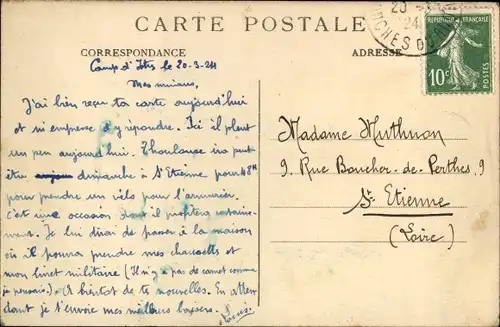 CARTE POSTALE
CORRESPONDANCE
ADRESSE
20
24
BOUCHES DU
REPUBLIQUE FRANÇAISE
10c
POSTES
Camp d'Istres le 20-3-24
J'ai bien reçu ta carte aujourd'hui
et m'empresse d'y répondre. Ici il pleut
un peu aujourd'hui. Thoulouze ira peut
être dimanche à St Etienne pour 48H
pour prendre un vélo pour l'armurier.
c'est une occasion dont il profitera certaine-
ment. Je lui dirai de passer à la maison
où il pourra prendre mes chaussettes et
mon livret militaire (Il n'y a pas de carnet comme
je pensais). A bientôt de tes nouvelles. En atten
dant je t'envoie mes meilleurs baisers.
Louis
Madame Muthuon
9. Rue Boucher-de-Perthes, 9
St Etienne
(Loire)